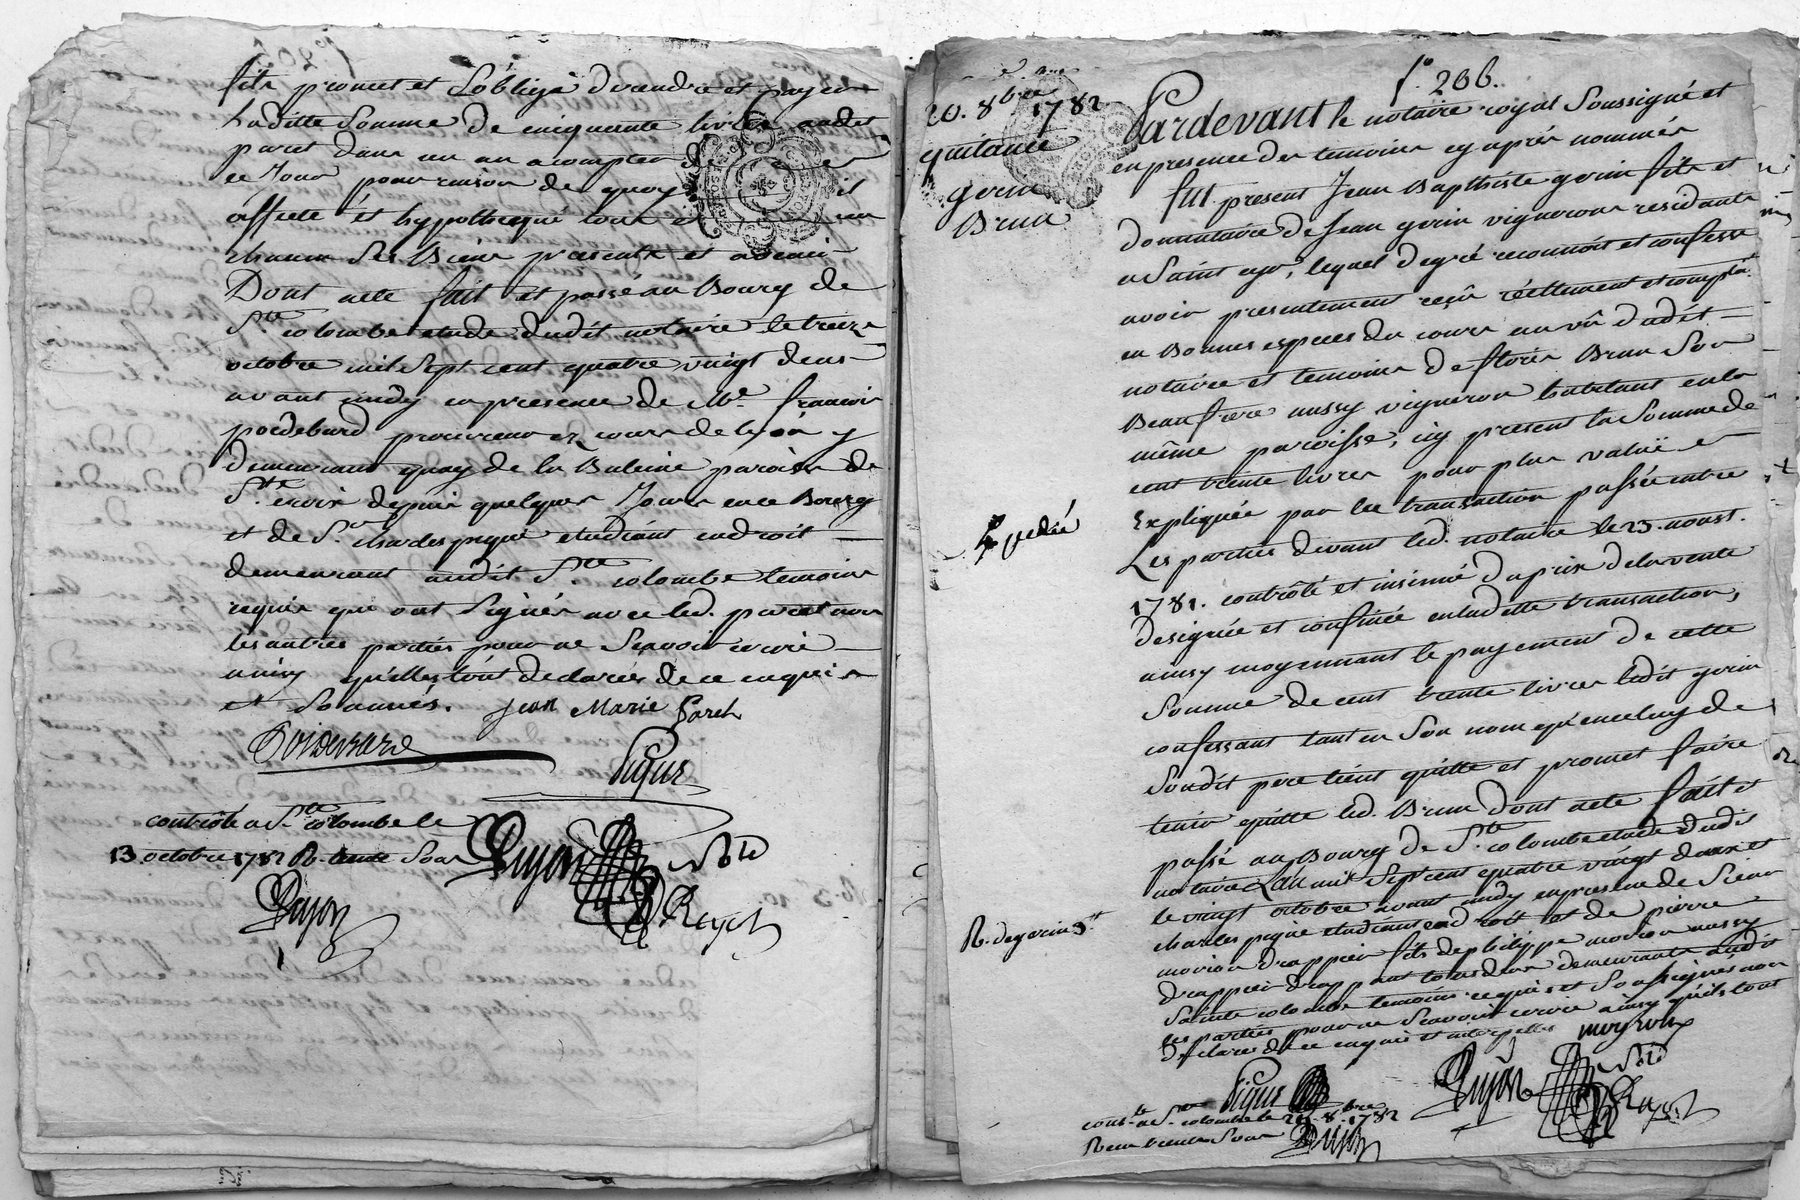 fils promet et s'oblige de rendre et payer
laditte somme de cinquante livres audit
paret dans un an a compter de
ce jour pour raison de quoy il
affecte et hypothequé tous et un
chacun ses Biens presents et avenir
Dont acte fait et passé au Bourg de
Ste colombe etude dudit notaire le treize
octobre mil sept cent quatre vingt deux
avant midy en presence de Me francois
poidebard procureur ez cours de lyon y
demeurant quay de la Baleine paroisse de
Ste croix depuis quelques jours en ce Bourg
et de Sr charles pigué etudiant en droit
demeurant audit Ste colombe temoins
requis qui ont signés avec led. paret non
les autres parties pour ne scavoir ecrire
ainsy qu'elles l'ont declarées de ce enquis
et sommés. jean Marie Paret
Poidebard
controlé a Ste colombe le
13 octobre 1782 R. trente sous
Dujon
f.° 206.
20. 8bre 1782
quitance
gerin
Brun
Pardevant le notaire royal soussigné et
en presence des temoins cy aprés nommés
fut present Jean Baptiste gerin fils et
donnataire de Jean gerin vigneron residants
a Saint cyr, lequel de gré reconnoit et confesse
avoir presentement reçû réellement et compté
en Bonnes especes du cours au vû dudit
notaire et temoins de floris Brun son
Beaufrere aussy vigneron habitant en la
même paroisse, icy present la somme de
cent trente livres pour plus value
Expliquée par la transaction passée entre
Expedié
Les parties devant led. notaire le 23. aoust.
1781. contrôlé et insinué du prix de la vente
designée et confinée en laditte transaction,
ainsy moyennant le payement de cette
somme de cent trente livres ledit gerin
confessant tant en son nom qu'en celuy de
sondit pere tient quitte et promet faire
tenir quitte led. Brun dont acte fait et
passé au Bourg de Ste colombe etude dudit
notaire L'an mil sept cent quatre vingt deux et
le vingt octobre avant midy en presence de Sieur
charles pigué etudiant en droit et de pierre
R. de gerin 3tt
fils de philippe aussy
tous deux demeurants audit
Sainte colombe temoins requis et soussignés non
les parties pour ne scavoir ecrire ainsy qu'ils l'ont
declarés de ce enquis et interpellés
Dujon
contlé a Ste colombe le 20. 8bre 1782
Reçu trente sous Dujon